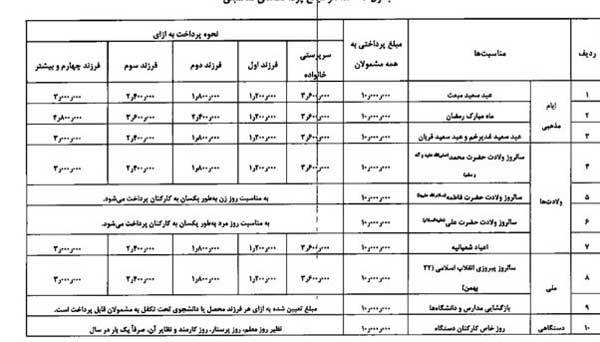 ردیف مناسبت‌ها مبلغ پرداختی به همه مشمولان نحوه پرداخت به ازای
سرپرستی خانواده فرزند اول فرزند دوم فرزند سوم فرزند چهارم و بیشتر
۱ ایام مذهبی عید سعید مبعث ۱۰٫۰۰۰٫۰۰۰ ۳٫۶۰۰٫۰۰۰ ۱٫۲۰۰٫۰۰۰ ۱٫۸۰۰٫۰۰۰ ۲٫۴۰۰٫۰۰۰ ۳٫۰۰۰٫۰۰۰
۲ ماه مبارک رمضان ۱۰٫۰۰۰٫۰۰۰ ۳٫۶۰۰٫۰۰۰ ۱٫۲۰۰٫۰۰۰ ۱٫۸۰۰٫۰۰۰ ۳٫۶۰۰٫۰۰۰ ۴٫۸۰۰٫۰۰۰
۳ عید سعید غدیرخم و عید سعید قربان ۱۰٫۰۰۰٫۰۰۰ ۳٫۶۰۰٫۰۰۰ ۱٫۲۰۰٫۰۰۰ ۱٫۸۰۰٫۰۰۰ ۲٫۴۰۰٫۰۰۰ ۳٫۰۰۰٫۰۰۰
۴ ولادت‌ها سالروز ولادت حضرت محمد ۱۰٫۰۰۰٫۰۰۰ ۳٫۶۰۰٫۰۰۰ ۱٫۲۰۰٫۰۰۰ ۱٫۸۰۰٫۰۰۰ ۲٫۴۰۰٫۰۰۰ ۳٫۰۰۰٫۰۰۰
۵ سالروز ولادت حضرت فاطمه ۱۰٫۰۰۰٫۰۰۰ به مناسبت روز زن به‌طور یکسان به کارکنان پرداخت می‌شود.
۶ سالروز ولادت حضرت علی ۱۰٫۰۰۰٫۰۰۰ به مناسبت روز مرد به‌طور یکسان به کارکنان پرداخت می‌شود.
۷ اعیاد شعبانیه ۱۰٫۰۰۰٫۰۰۰ ۳٫۶۰۰٫۰۰۰ ۱٫۲۰۰٫۰۰۰ ۱٫۸۰۰٫۰۰۰ ۲٫۴۰۰٫۰۰۰ ۳٫۰۰۰٫۰۰۰
۸ ملی سالروز پیروزی انقلاب اسلامی (۲۲ بهمن) ۱۰٫۰۰۰٫۰۰۰ ۳٫۶۰۰٫۰۰۰ ۱٫۲۰۰٫۰۰۰ ۱٫۸۰۰٫۰۰۰ ۲٫۴۰۰٫۰۰۰ ۳٫۰۰۰٫۰۰۰
۹ بازگشایی مدارس و دانشگاه‌ها ۱۰٫۰۰۰٫۰۰۰ مبلغ تعیین شده به ازای هر فرزند محصل یا دانشجوی تحت تکفل به مشمولان قابل پرداخت است.
۱۰ دستگاهی روز خاص کارکنان دستگاه ۱۰٫۰۰۰٫۰۰۰ نظیر روز معلم، روز پرستار، روز کارمند و نظایر آن، صرفاً یک بار در سال